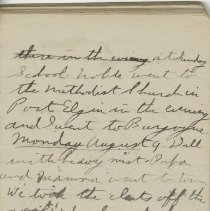 there in the evening at Sunday
School. Noble went to
the Methodist Church in
Port Elgin in the evening
and I went to Burgoyne.
Monday August 9. Dull
with heavy mist. Papa
and went to town
We took the slats off the